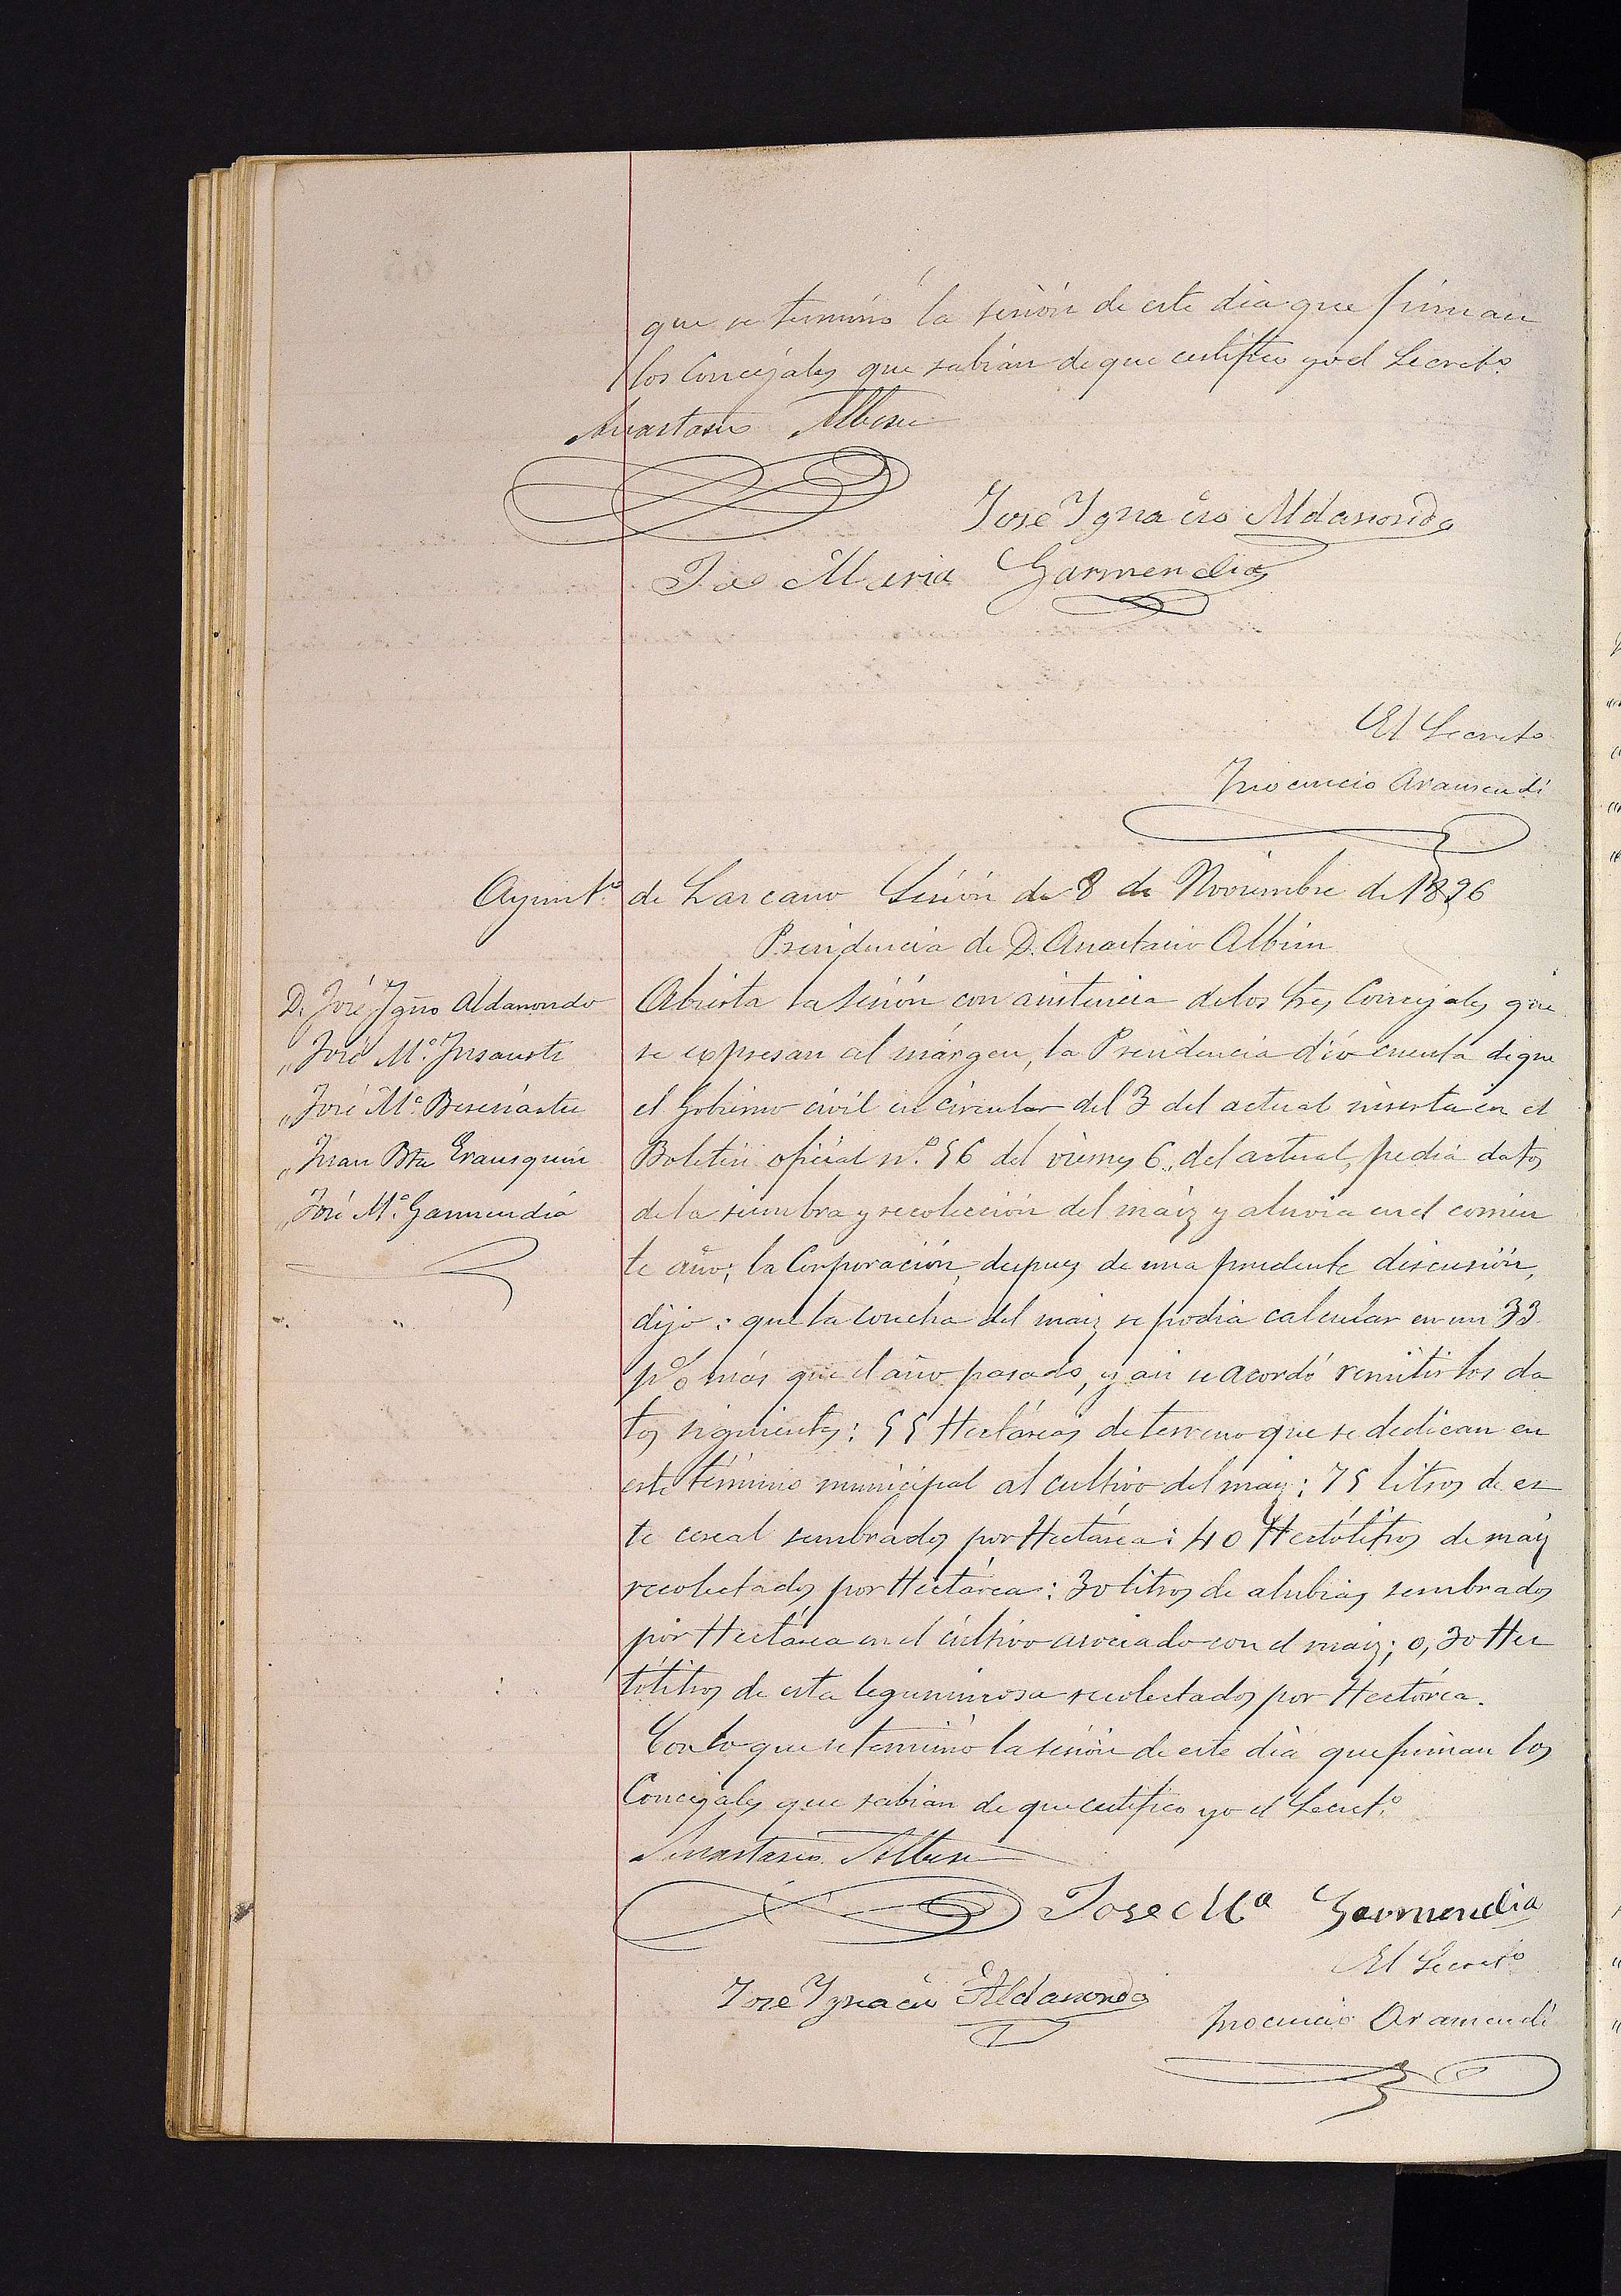 que se terminó la sesión de este dia que firman
los Concejales que sabian de que certifico yo el Secretº
Anastasio Albisu
Jose Ignacio Aldanondo
Jose Maria Garmendia
El Secretº
Inocencio Aramendi
Ayuntº de Lazcano Sesión de 8 de Noviembre de 1896
Presidencia de D. Anastasio Albisu
D. José Ygnº Aldanondo
„ José Mª Insausti
„ José Mª
„ Juan Bta Erausquin
„ José Mª Garmendia
Abierta la sesión con asistencia de los Sres Concejales que
se expresan al márgen, la Presidencia dió cuenta de que
el Gobierno civil en circular del 3 del actual inserta en el
Boletin oficial nº 56 del viernes 6 „ del actual, pedia datos
de la siembra y recolección del maiz y aluvia en el corrien
te año; la Corporación, despues de una prudente discusión,
dijo: que la cosecha del maiz se podia calcular en un 33
p% más que el año pasado, y asi se acordó remitir los da
tos siguientes: 55 Hectáreas de terreno que se dedican en
este término municipal al cultivo del maiz: 75 litros de es
te cereal sembrados por Hectárea: 40 Hectólitros de maiz
recolectados por Hectárea: 30 litros de alubias sembrados
por Hectárea en el cultivo asociado con el maiz; 0,30 Hec
tólitros de esta leguminosa recolectados por Hectárea.
Con lo que se terminó la sesión de este dia que firman los
Concejales que sabian de que certifico yo el Secretº
Anastasio Albisu
Jose Mª Garmendia
El Secretº
Jose Ygnacio Aldanondo
Inocencio Aramendi